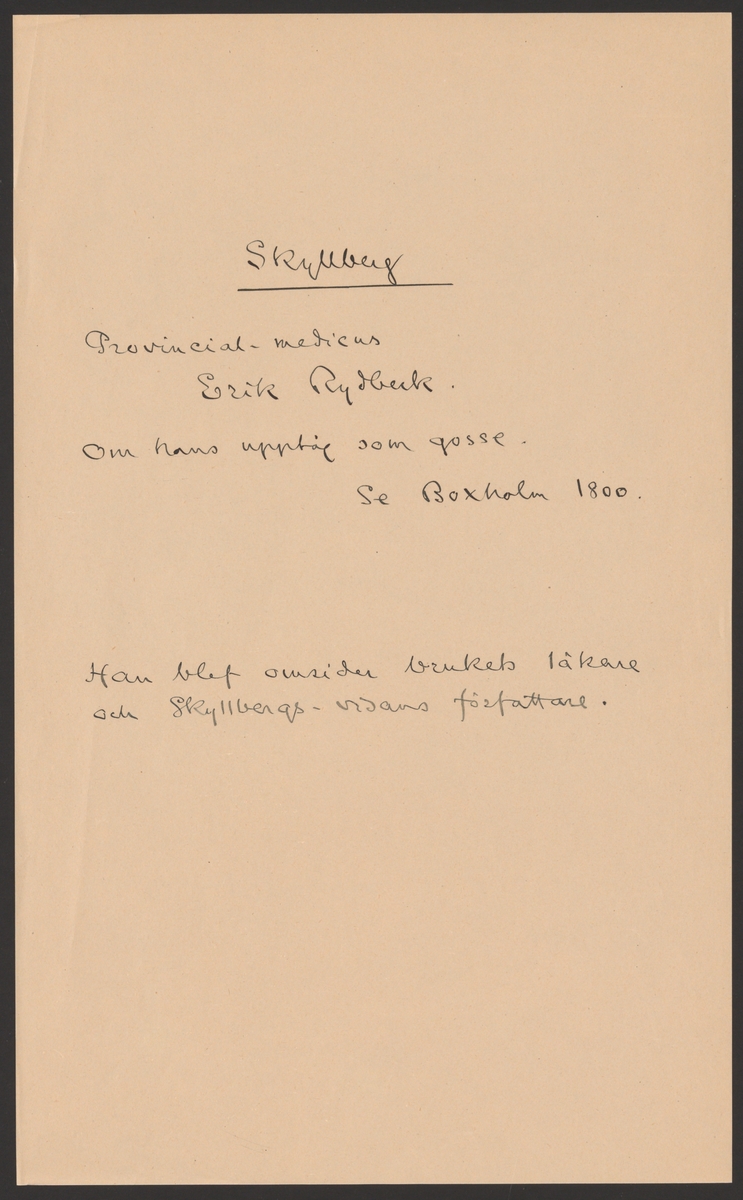 Skyllberg
Provincial-medicus
Erik Rydbeck.
Om hans upptåg som gosse.
Se Boxholm 1800.
Han blef omsider brukets läkare
och Skyllbergs-visans författare.